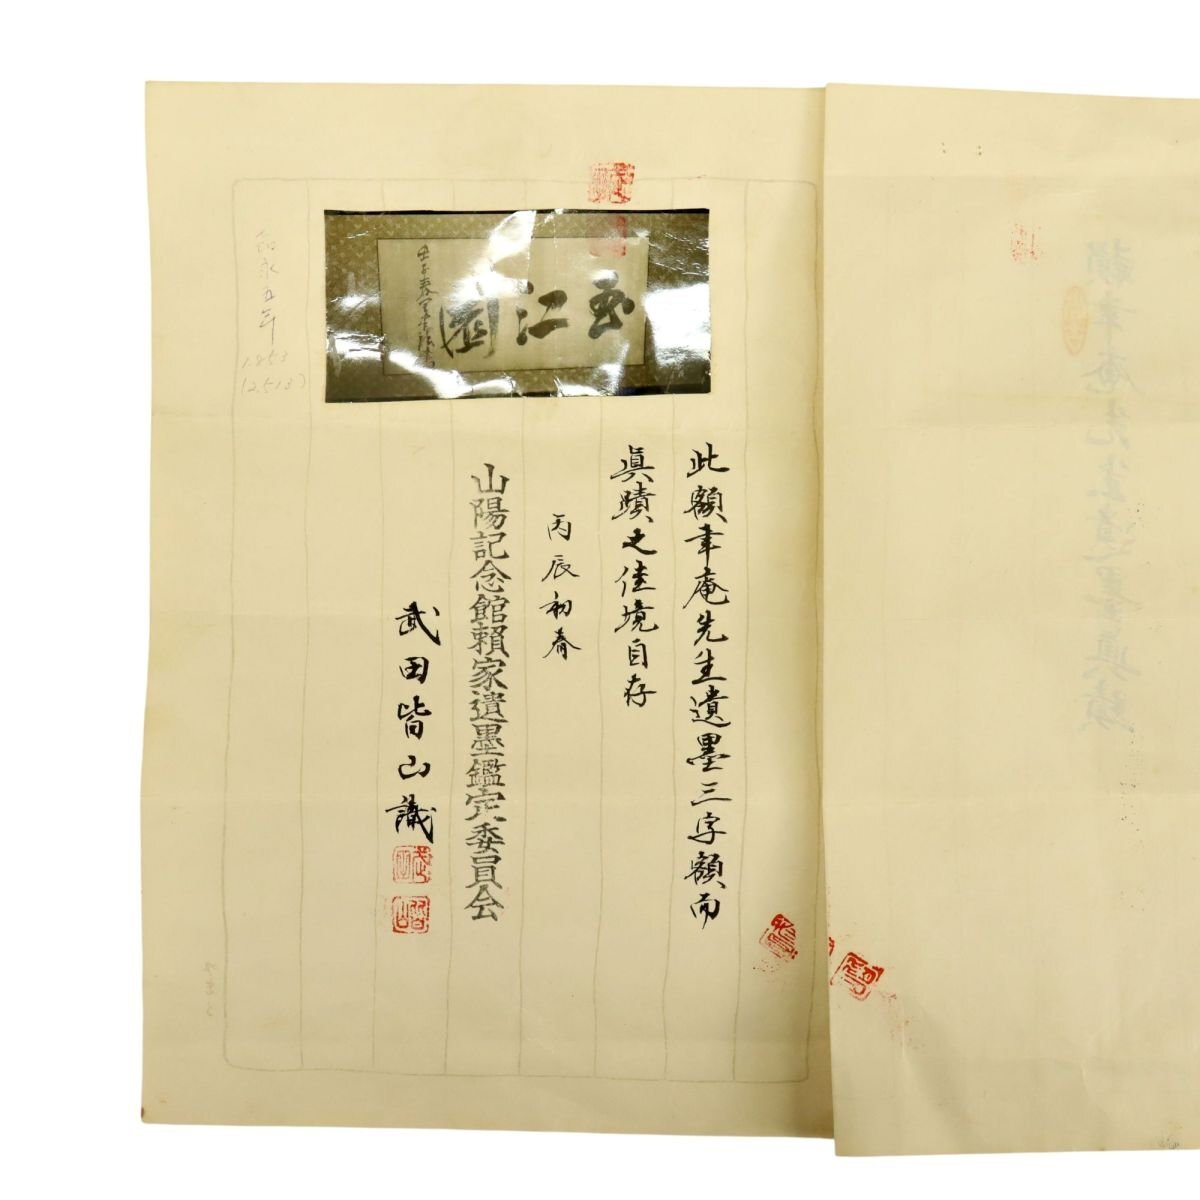 此額聿庵先生遺墨三字額而
眞蹟之佳境自存
丙辰初春
山陽記念館賴家遺墨鑑定委員会
武田皆山識
嘉永五年
1853
(2513)
江
壬子春
賴聿庵先生遺墨眞蹟